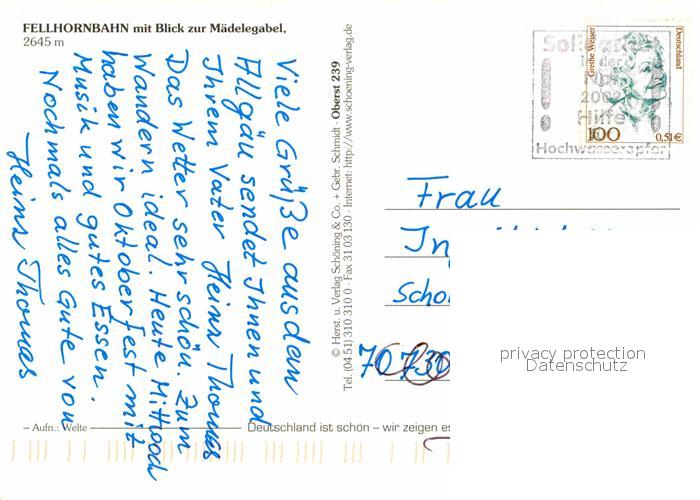 FELLHORNBAHN mit Blick zur Mädelegabel,
2645 m
Viele Grüße aus dem
Allgäu sendet Ihnen und
Ihrem Vater Heinr Thomas
Das Wetter sehr schön. Zum
Wandern ideal. Heute Mittwoch
haben wir Oktoberfest mit
Musik und gutes Essen.
Nochmals alles Gute von
Heinr Thomas
– Aufn.: Welte
Deutschland ist schön – wir zeigen es
© Herst. u. Verlag Schöning & Co. + Gebr. Schmidt · Oberst 239
Tel. (04 51) 310 310 0 · Fax 31 03 130 · Internet: http://www.schoening-verlag.de
Grethe Weiser
Deutschland
100
0,51€
in der
Not
2002
Hilfe
Hochwasseropfer
Frau
70730
privacy protection
Datenschutz